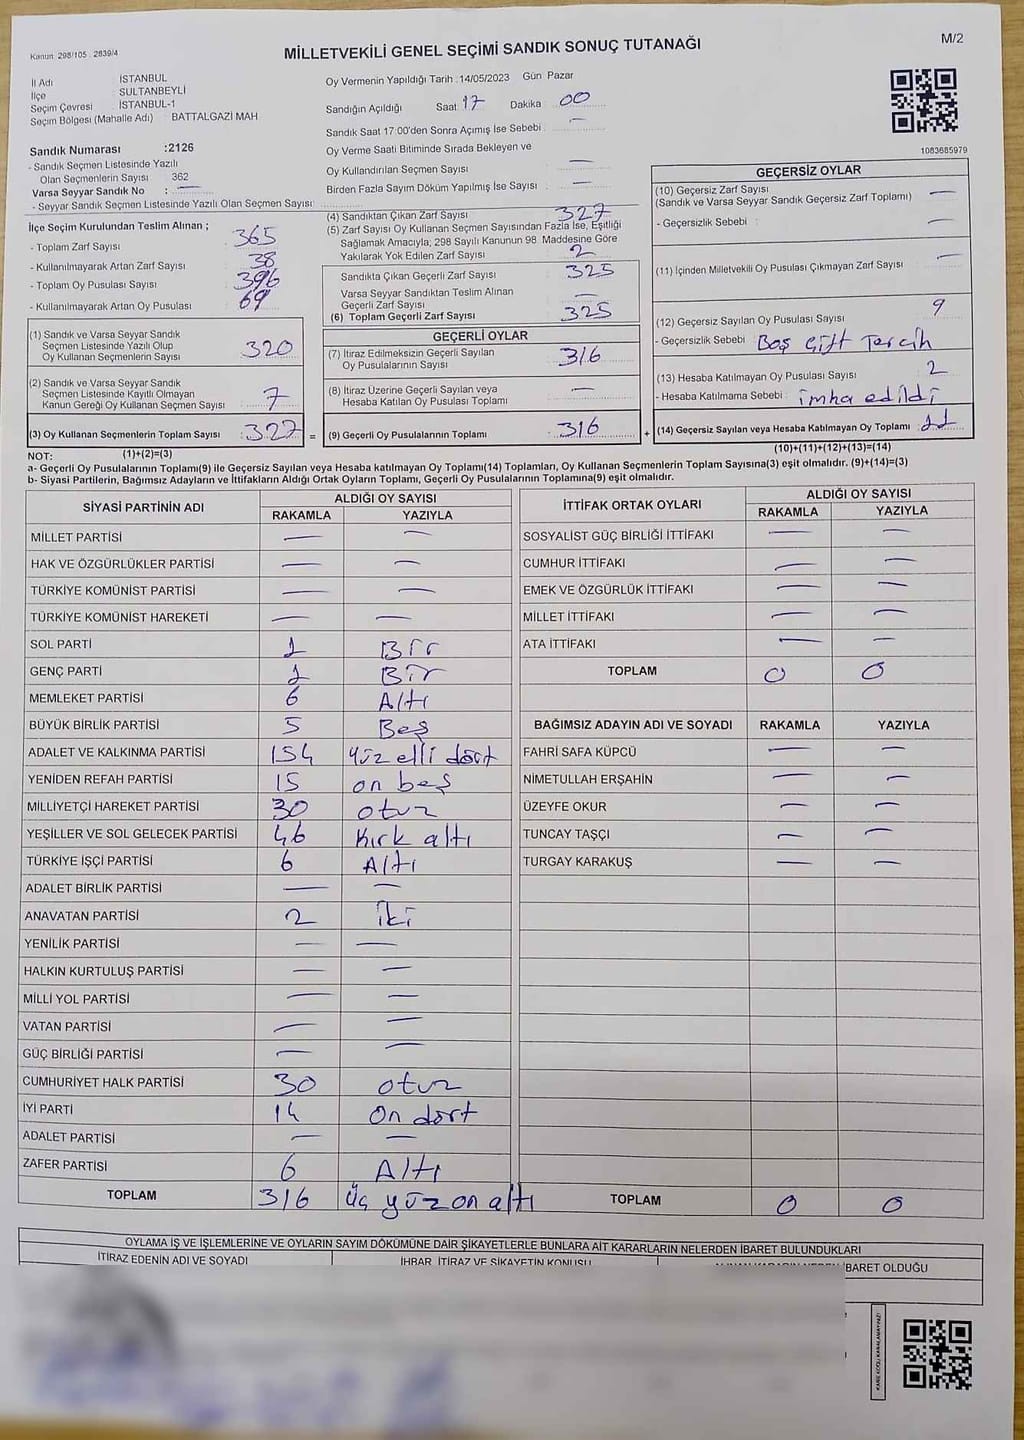 Kanun 298/105 2839/4
MİLLETVEKİLİ GENEL SEÇİMİ SANDIK SONUÇ TUTANAĞI
M/2
İl Adı : İSTANBUL
İlçe : SULTANBEYLİ
Seçim Çevresi : İSTANBUL-1
Seçim Bölgesi (Mahalle Adı) : BATTALGAZİ MAH
Oy Vermenin Yapıldığı Tarih :14/05/2023 Gün Pazar
Sandığın Açıldığı Saat 17 Dakika 00
Sandık Saat 17:00'den Sonra Açımış İse Sebebi : —
Oy Verme Saati Bitiminde Sırada Bekleyen ve
Oy Kullandırılan Seçmen Sayısı : —
Birden Fazla Sayım Döküm Yapılmış İse Sayısı : —
1083685979
Sandık Numarası :2126
- Sandık Seçmen Listesinde Yazılı
Olan Seçmenlerin Sayısı 362
Varsa Seyyar Sandık No : —
- Seyyar Sandık Seçmen Listesinde Yazılı Olan Seçmen Sayısı:
İlçe Seçim Kurulundan Teslim Alınan ;
- Toplam Zarf Sayısı : 365
- Kullanılmayarak Artan Zarf Sayısı : 38
- Toplam Oy Pusulası Sayısı : 396
- Kullanılmayarak Artan Oy Pusulası : 69
(1) Sandık ve Varsa Seyyar Sandık
Seçmen Listesinde Yazılı Olup
Oy Kullanan Seçmenlerin Sayısı : 320
(2) Sandık ve Varsa Seyyar Sandık
Seçmen Listesinde Kayıtlı Olmayan
Kanun Gereği Oy Kullanan Seçmen Sayısı : 7
(3) Oy Kullanan Seçmenlerin Toplam Sayısı : 327 =
(1)+(2)=(3)
(4) Sandıktan Çıkan Zarf Sayısı 327
(5) Zarf Sayısı Oy Kullanan Seçmen Sayısından Fazla İse, Eşitliği
Sağlamak Amacıyla; 298 Sayılı Kanunun 98. Maddesine Göre
Yakılarak Yok Edilen Zarf Sayısı : 2
Sandıkta Çıkan Geçerli Zarf Sayısı : 325
Varsa Seyyar Sandıktan Teslim Alınan
Geçerli Zarf Sayısı : —
(6) Toplam Geçerli Zarf Sayısı : 325
GEÇERLİ OYLAR
(7) İtiraz Edilmeksizin Geçerli Sayılan
Oy Pusulalarının Sayısı : 316
(8) İtiraz Üzerine Geçerli Sayılan veya
Hesaba Katılan Oy Pusulası Toplamı : —
(9) Geçerli Oy Pusulalarının Toplamı : 316 +
GEÇERSİZ OYLAR
(10) Geçersiz Zarf Sayısı
(Sandık ve Varsa Seyyar Sandık Geçersiz Zarf Toplamı) —
- Geçersizlik Sebebi : —
(11) İçinden Milletvekili Oy Pusulası Çıkmayan Zarf Sayısı : —
(12) Geçersiz Sayılan Oy Pusulası Sayısı : 9
- Geçersizlik Sebebi : Boş Çift Tercih
(13) Hesaba Katılmayan Oy Pusulası Sayısı : 2
- Hesaba Katılmama Sebebi : imha edildi
(14) Geçersiz Sayılan veya Hesaba Katılmayan Oy Toplamı : 11
(10)+(11)+(12)+(13)=(14)
NOT:
a- Geçerli Oy Pusulalarının Toplamı(9) ile Geçersiz Sayılan veya Hesaba katılmayan Oy Toplamı(14) Toplamları, Oy Kullanan Seçmenlerin Toplam Sayısına(3) eşit olmalıdır. (9)+(14)=(3)
b- Siyasi Partilerin, Bağımsız Adayların ve İttifakların Aldığı Ortak Oyların Toplamı, Geçerli Oy Pusulalarının Toplamına(9) eşit olmalıdır.
SİYASİ PARTİNİN ADI ALDIĞI OY SAYISI
RAKAMLA YAZIYLA
MİLLET PARTİSİ — —
HAK VE ÖZGÜRLÜKLER PARTİSİ — —
TÜRKİYE KOMÜNİST PARTİSİ — —
TÜRKİYE KOMÜNİST HAREKETİ — —
SOL PARTİ 1 Bir
GENÇ PARTİ 1 Bir
MEMLEKET PARTİSİ 6 Altı
BÜYÜK BİRLİK PARTİSİ 5 Beş
ADALET VE KALKINMA PARTİSİ 154 yüz elli dört
YENİDEN REFAH PARTİSİ 15 on beş
MİLLİYETÇİ HAREKET PARTİSİ 30 otuz
YEŞİLLER VE SOL GELECEK PARTİSİ 46 Kırk altı
TÜRKİYE İŞÇİ PARTİSİ 6 Altı
ADALET BİRLİK PARTİSİ — —
ANAVATAN PARTİSİ 2 iki
YENİLİK PARTİSİ — —
HALKIN KURTULUŞ PARTİSİ — —
MİLLİ YOL PARTİSİ — —
VATAN PARTİSİ — —
GÜÇ BİRLİĞİ PARTİSİ — —
CUMHURİYET HALK PARTİSİ 30 otuz
İYİ PARTİ 14 On dört
ADALET PARTİSİ — —
ZAFER PARTİSİ 6 Altı
TOPLAM 316 üç yüz on altı
İTTİFAK ORTAK OYLARI ALDIĞI OY SAYISI
RAKAMLA YAZIYLA
SOSYALİST GÜÇ BİRLİĞİ İTTİFAKI — —
CUMHUR İTTİFAKI — —
EMEK VE ÖZGÜRLÜK İTTİFAKI — —
MİLLET İTTİFAKI — —
ATA İTTİFAKI — —
TOPLAM 0 0
BAĞIMSIZ ADAYIN ADI VE SOYADI RAKAMLA YAZIYLA
FAHRİ SAFA KÜPCÜ — —
NİMETULLAH ERŞAHİN — —
ÜZEYFE OKUR — —
TUNCAY TAŞÇI — —
TURGAY KARAKUŞ — —
TOPLAM 0 0
OYLAMA İŞ VE İŞLEMLERİNE VE OYLARIN SAYIM DÖKÜMÜNE DAİR ŞİKAYETLERLE BUNLARA AİT KARARLARIN NELERDEN İBARET BULUNDUKLARI
İTİRAZ EDENİN ADI VE SOYADI İHBAR, İTİRAZ VE ŞİKAYETİN KONUSU İBARET OLDUĞU